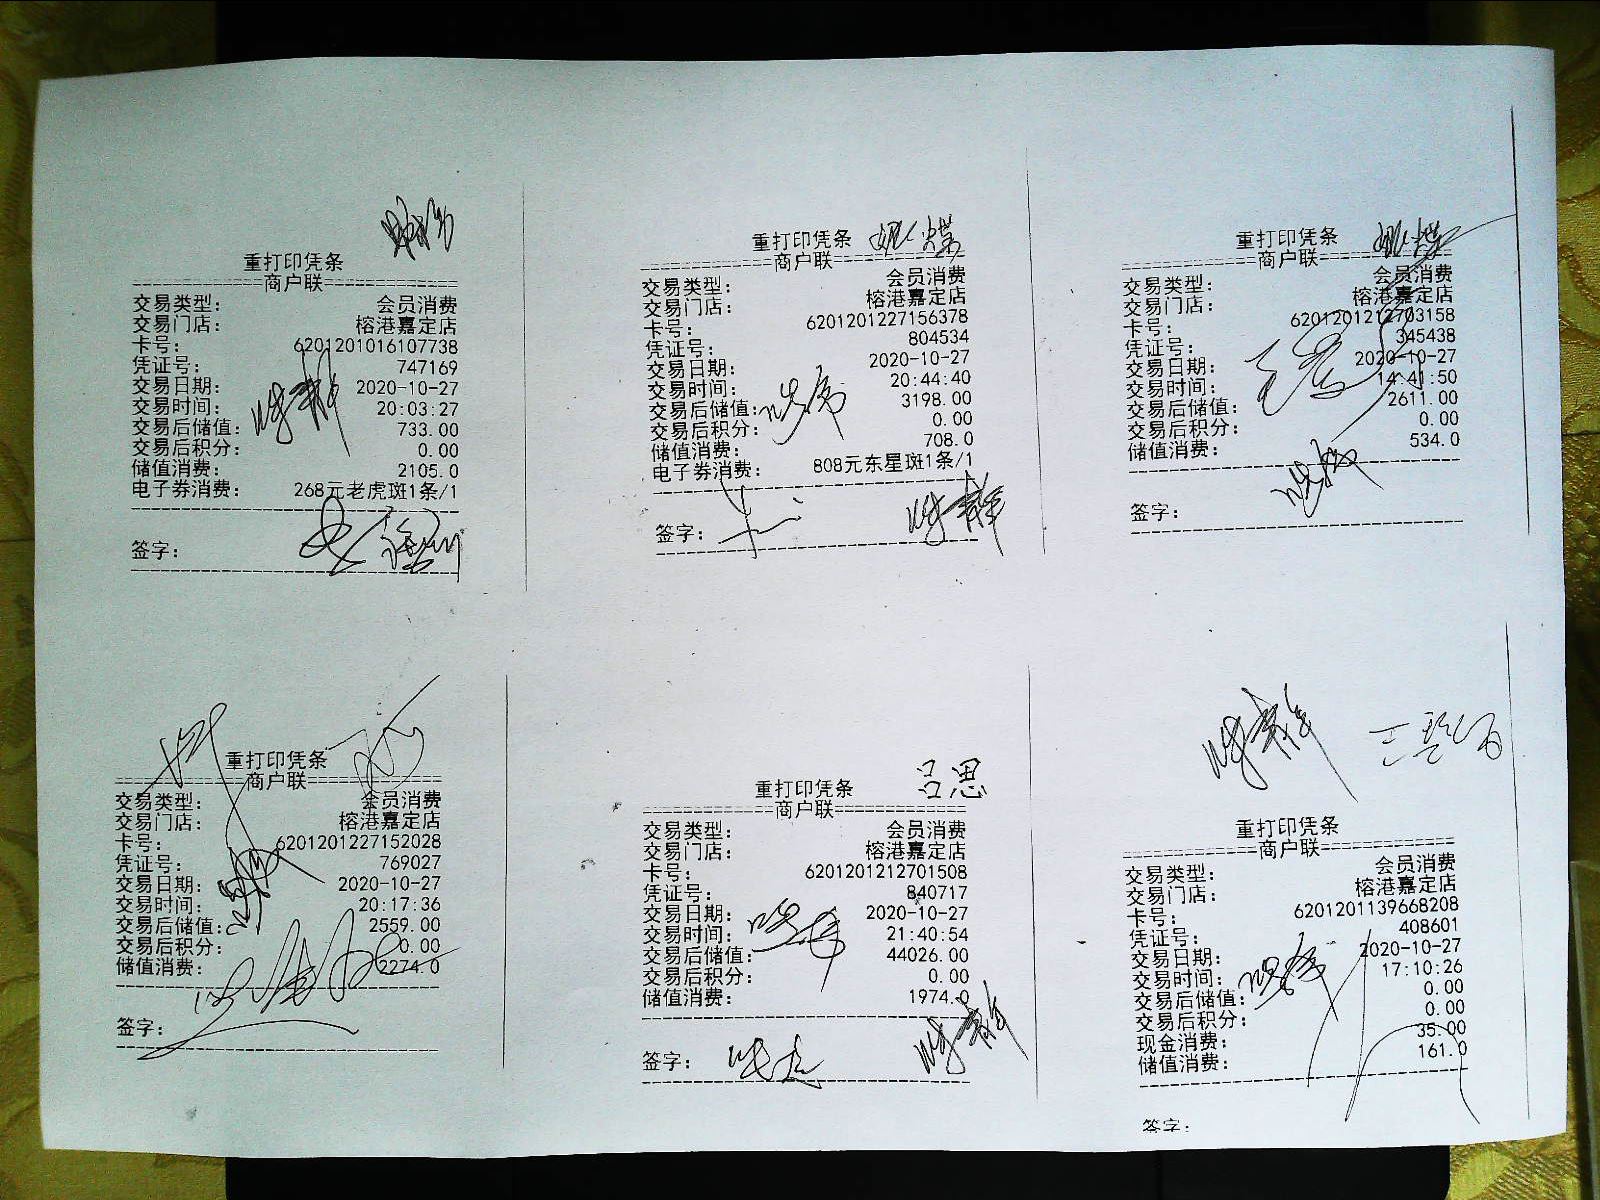 重打印凭条
==========商户联==========
交易类型: 会员消费
交易门店: 榕港嘉定店
卡号: 6201201016107738
凭证号: 747169
交易日期: 2020-10-27
交易时间: 20:03:27
交易后储值: 733.00
交易后积分: 0.00
储值消费: 2105.0
电子券消费: 268元老虎斑1条/1
签字:
重打印凭条
==========商户联==========
交易类型: 会员消费
交易门店: 榕港嘉定店
卡号: 6201201227156378
凭证号: 804534
交易日期: 2020-10-27
交易时间: 20:44:40
交易后储值: 3198.00
交易后积分: 0.00
储值消费: 708.0
电子券消费: 808元东星斑1条/1
签字:
重打印凭条
==========商户联==========
交易类型: 会员消费
交易门店: 榕港嘉定店
卡号: 6201201212703158
凭证号: 345438
交易日期: 2020-10-27
交易时间: 14:41:50
交易后储值: 2611.00
交易后积分: 0.00
储值消费: 534.0
签字:
重打印凭条
==========商户联==========
交易类型: 会员消费
交易门店: 榕港嘉定店
卡号: 6201201227152028
凭证号: 769027
交易日期: 2020-10-27
交易时间: 20:17:36
交易后储值: 2559.00
交易后积分: 0.00
储值消费: 2274.0
签字:
吕思
重打印凭条
==========商户联==========
交易类型: 会员消费
交易门店: 榕港嘉定店
卡号: 6201201212701508
凭证号: 840717
交易日期: 2020-10-27
交易时间: 21:40:54
交易后储值: 44026.00
交易后积分: 0.00
储值消费: 1974.0
签字:
重打印凭条
==========商户联==========
交易类型: 会员消费
交易门店: 榕港嘉定店
卡号: 6201201139668208
凭证号: 408601
交易日期: 2020-10-27
交易时间: 17:10:26
交易后储值: 0.00
交易后积分: 0.00
现金消费: 35.00
储值消费: 161.0
签字: